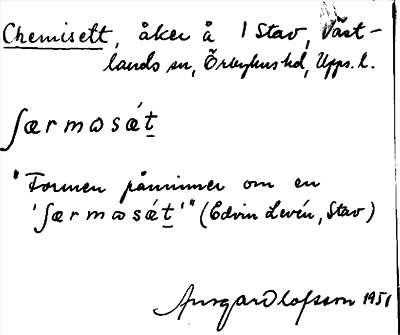 Chemisett, åker å 1 Stav, Väst-
lands sn, Örbyhus hd, Upps. l.
ʃærmωsǽt̠
"Formen påminner om en
'ʃærmωsǽt̠'" (Edvin Levén, Stav)
Ansgar Olofsson 1951